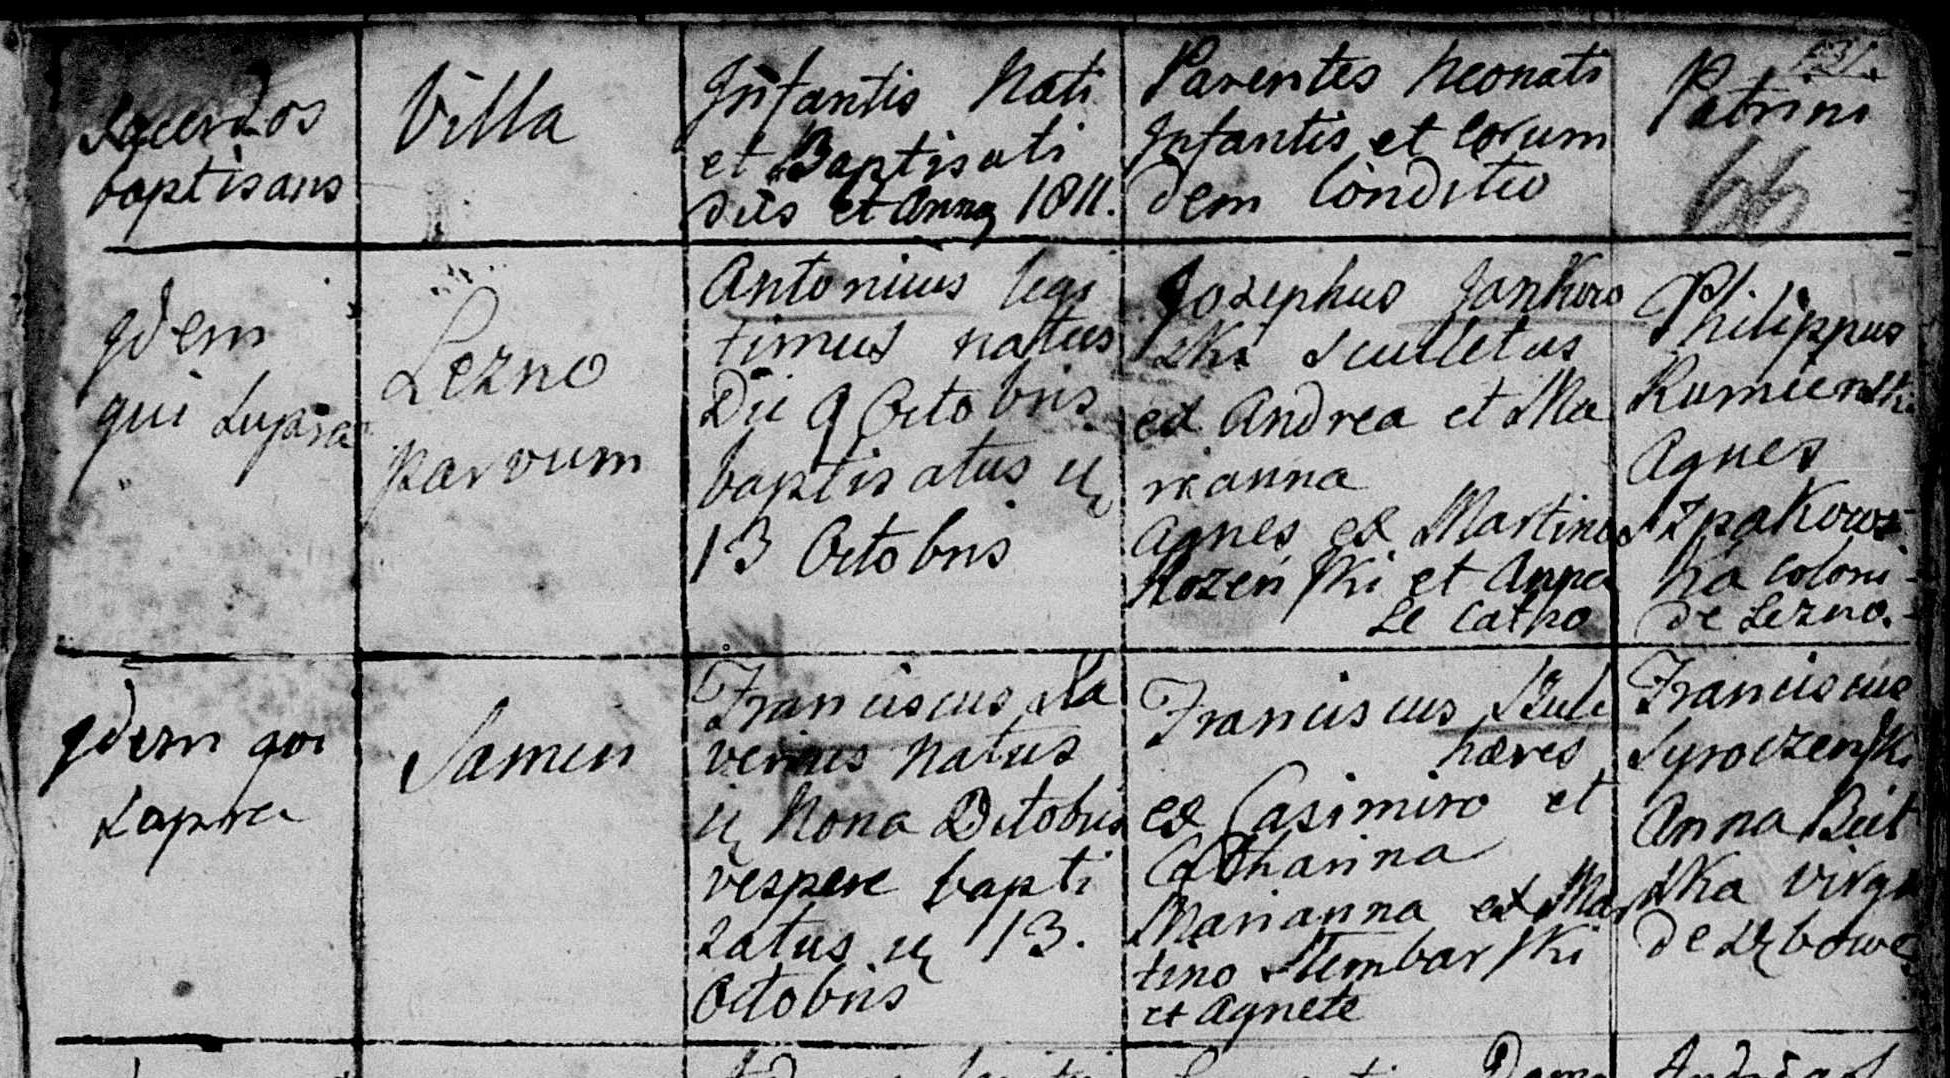 Sacerdos
baptisans
Villa
Infantis Nati
et Baptisati
diis et Anno 1811.
Parentes neonati
Infantis et eorum
dem Conditio
131.
Patrini
66
Idem
qui supra
Lezno
parvum
Antonius legi
timus natus
Die 9 Octobris
baptisatus
13 Octobris
Josephus Jankow
ski Scultetus
ex Andrea et Ma
rianna
Agnes ex Martino
Rozeński et Anna
de Catho
Philippus
Rumienski
Agnes
Szpakows
ka coloni
de Lezno.
Idem qui
supra
Samin
Franciscus Xa
verius natus
Nona Octobris
vespere bapti
zatus 13.
Octobris
Franciscus
hæres
ex Casimiro et
Catharina
Marianna ex Mar
tino Dembarski
et Agnete
Franciscus
Syroczenski
Anna
ska virgo
de